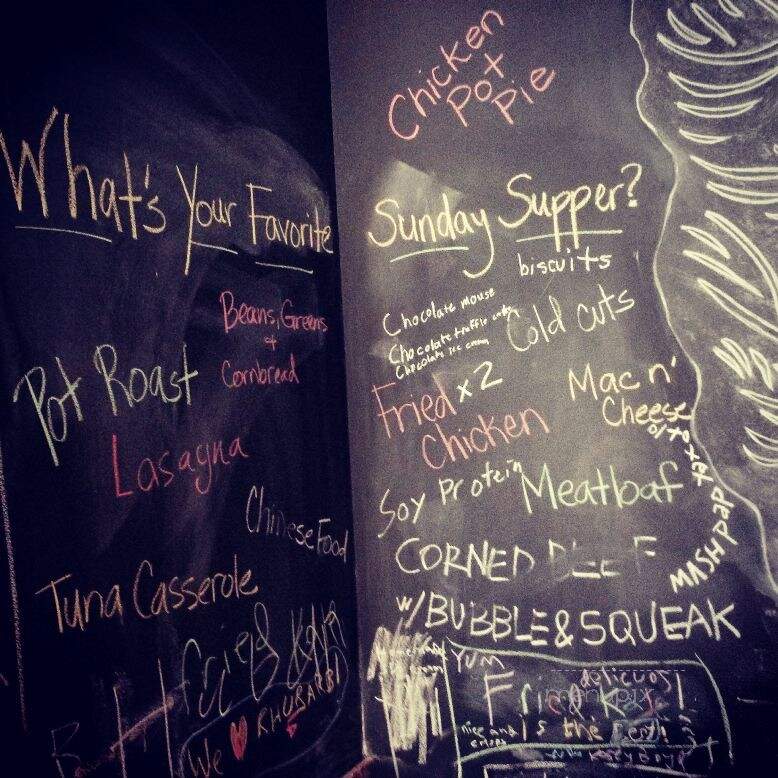 Chicken
Pot
Pie
What's Your Favorite
Sunday Supper?
Beans, Greens
+
Cornbread
Pot Roast
Lasagna
Chinese Food
Tuna Casserole
Fried
We
RHUBARB!
biscuits
Chocolate mouse
Chocolate truffle
Chocolate ice cream
Cold cuts
Fried x 2
Chicken
Mac n'
Cheese
Soy Protein
Meatloaf
MASHED
CORNED BEEF
W/BUBBLE & SQUEAK
YUM
delicuos
Fried
is the
nice and
crispy